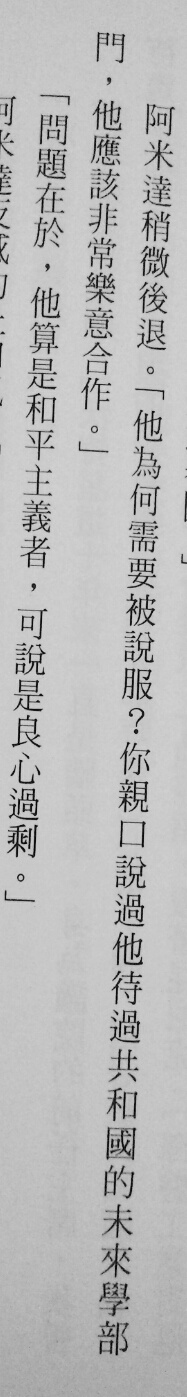 阿米達稍微後退。「他為何需要被說服？你親口說過他待過共和國的未來學部
門，他應該非常樂意合作。」
「問題在於，他算是和平主義者，可說是良心過剩。」